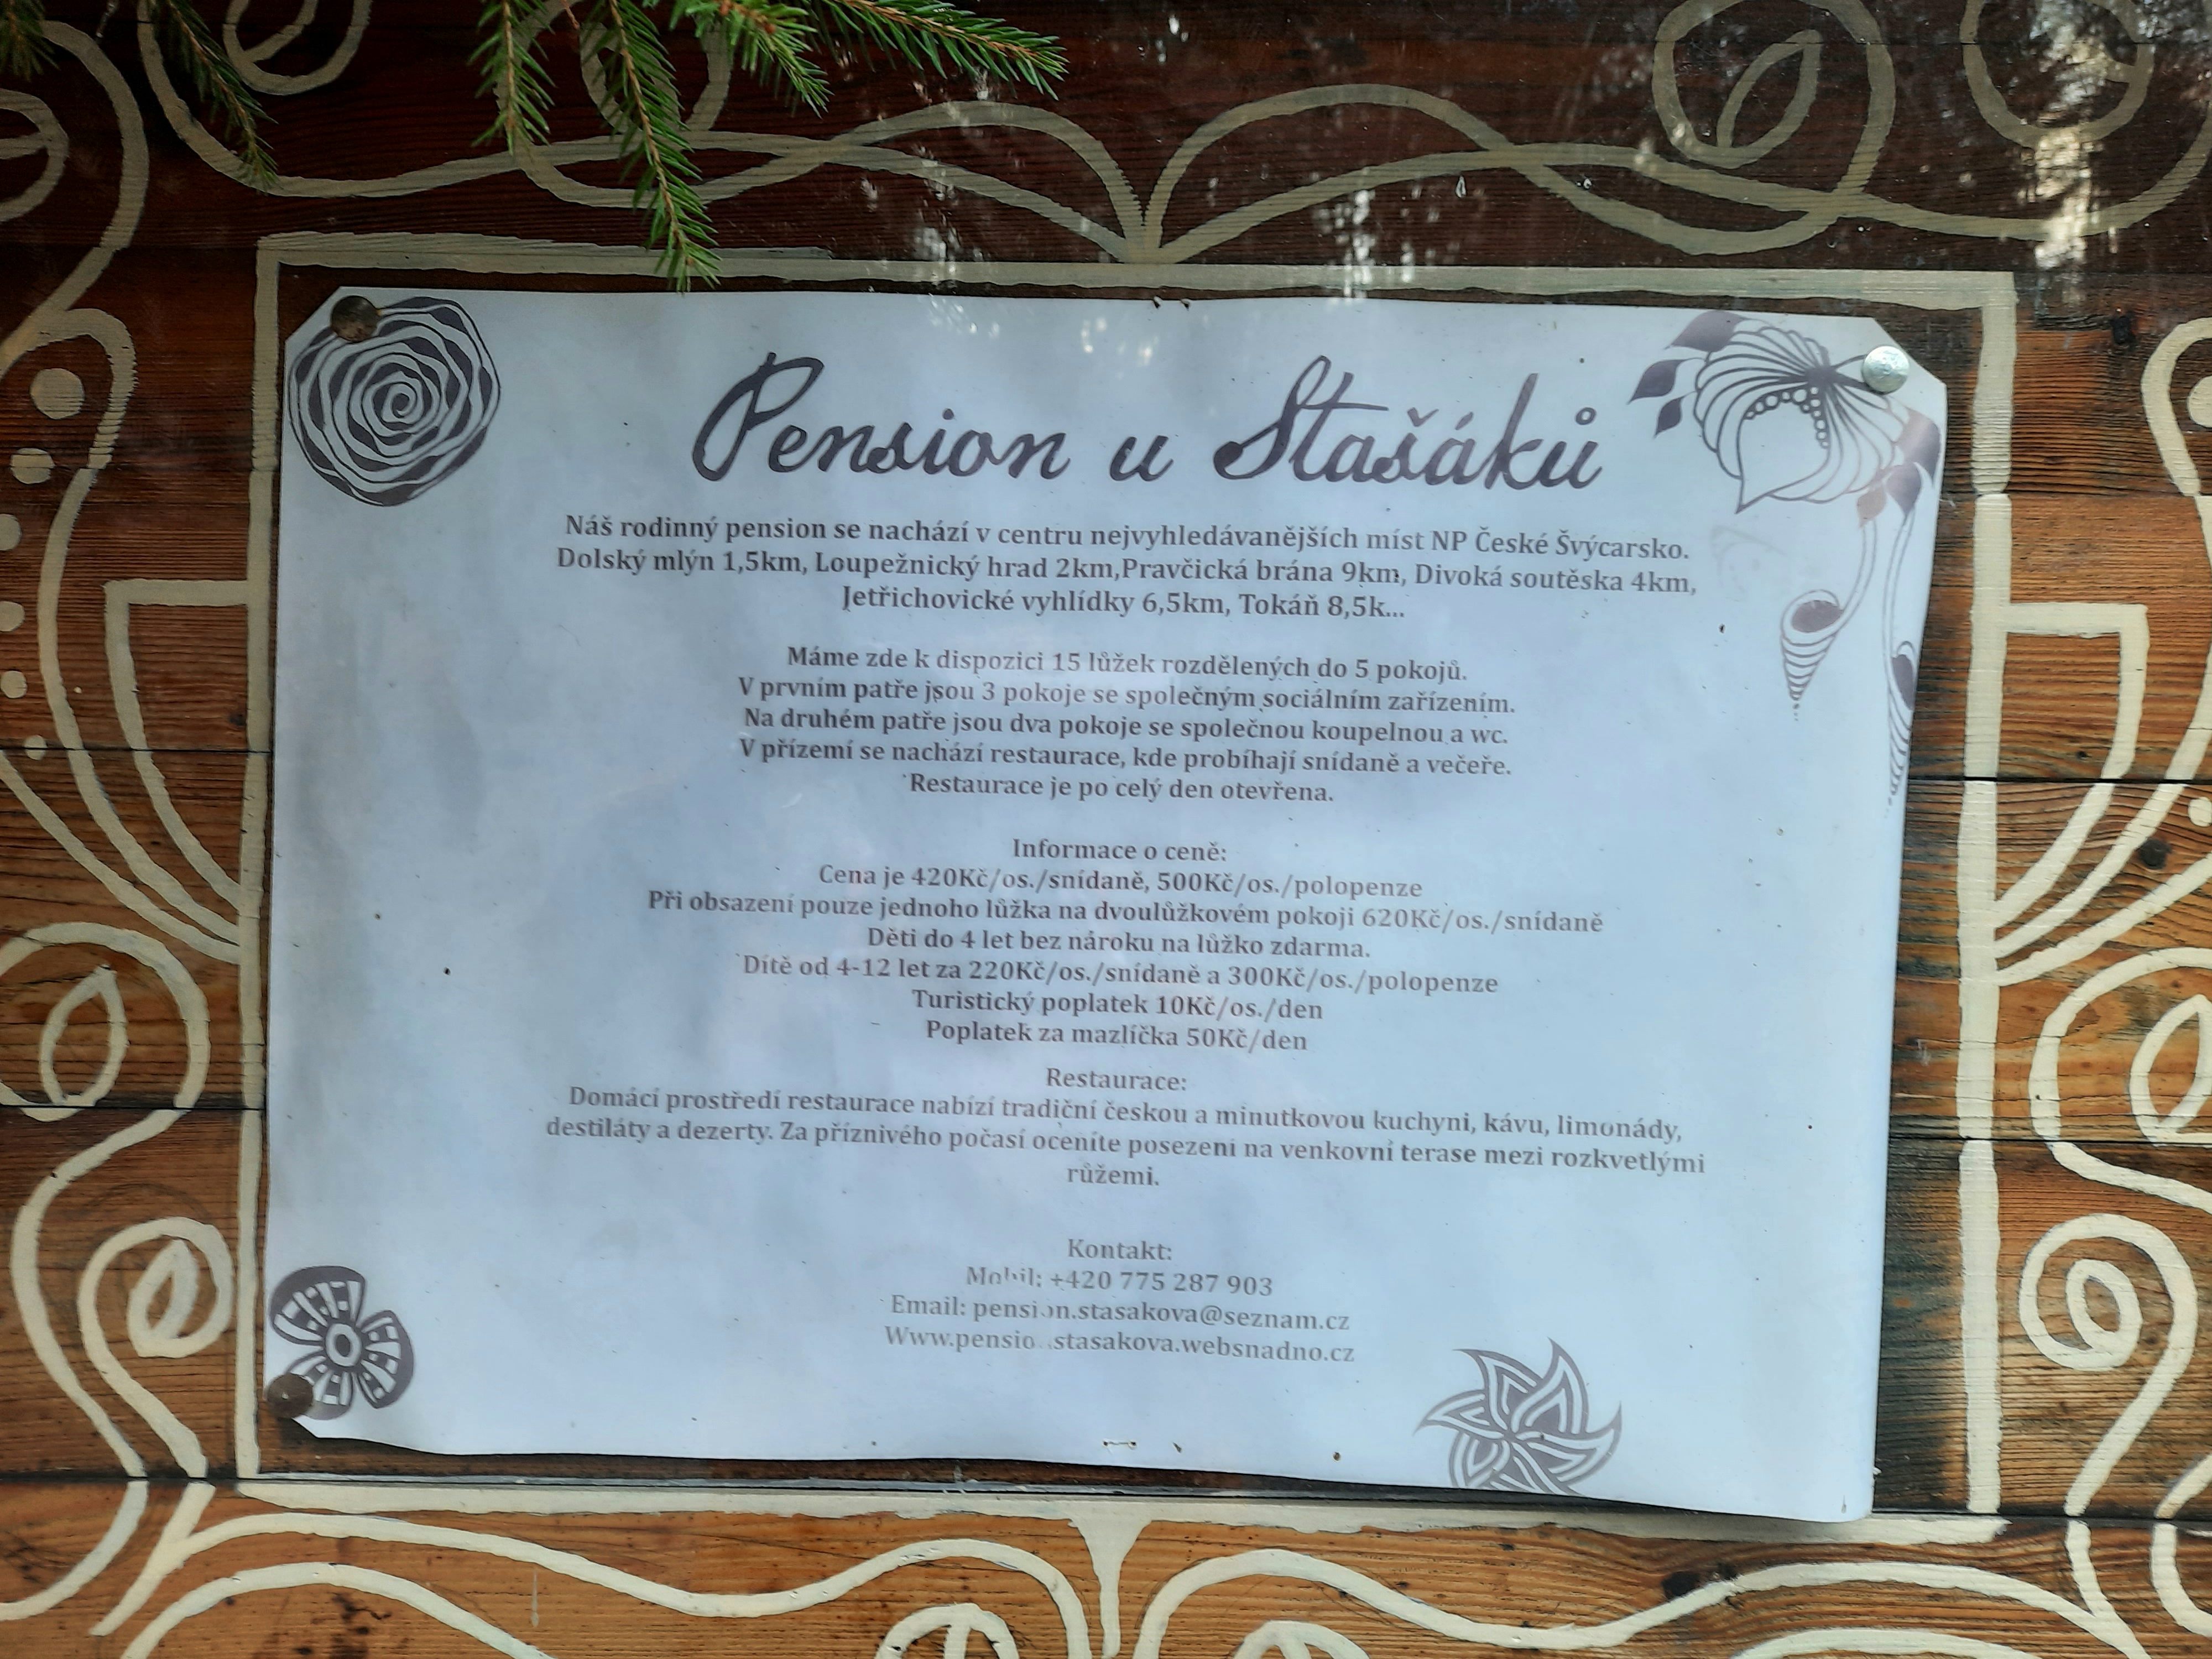 Pension u Stašáků
Náš rodinný pension se nachází v centru nejvyhledávanějších míst NP České Švýcarsko.
Dolský mlýn 1,5km, Loupežnický hrad 2km,Pravčická brána 9km, Divoká soutěska 4km,
Jetřichovické vyhlídky 6,5km, Tokáň 8,5k...
Máme zde k dispozici 15 lůžek rozdělených do 5 pokojů.
V prvním patře jsou 3 pokoje se společným sociálním zařízením.
Na druhém patře jsou dva pokoje se společnou koupelnou a wc.
V přízemí se nachází restaurace, kde probíhají snídaně a večeře.
Restaurace je po celý den otevřena.
Informace o ceně:
Cena je 420Kč/os./snídaně, 500Kč/os./polopenze
Při obsazení pouze jednoho lůžka na dvoulůžkovém pokoji 620Kč/os./snídaně
Děti do 4 let bez nároku na lůžko zdarma.
Dítě od 4-12 let za 220Kč/os./snídaně a 300Kč/os./polopenze
Turistický poplatek 10Kč/os./den
Poplatek za mazlíčka 50Kč/den
Restaurace:
Domácí prostředí restaurace nabízí tradiční českou a minutkovou kuchyni, kávu, limonády,
destiláty a dezerty. Za příznivého počasí oceníte posezení na venkovní terase mezi rozkvetlými
růžemi.
Kontakt:
Mobil: +420 775 287 903
Email: pension.stasakova@seznam.cz
Www.pension.stasakova.websnadno.cz